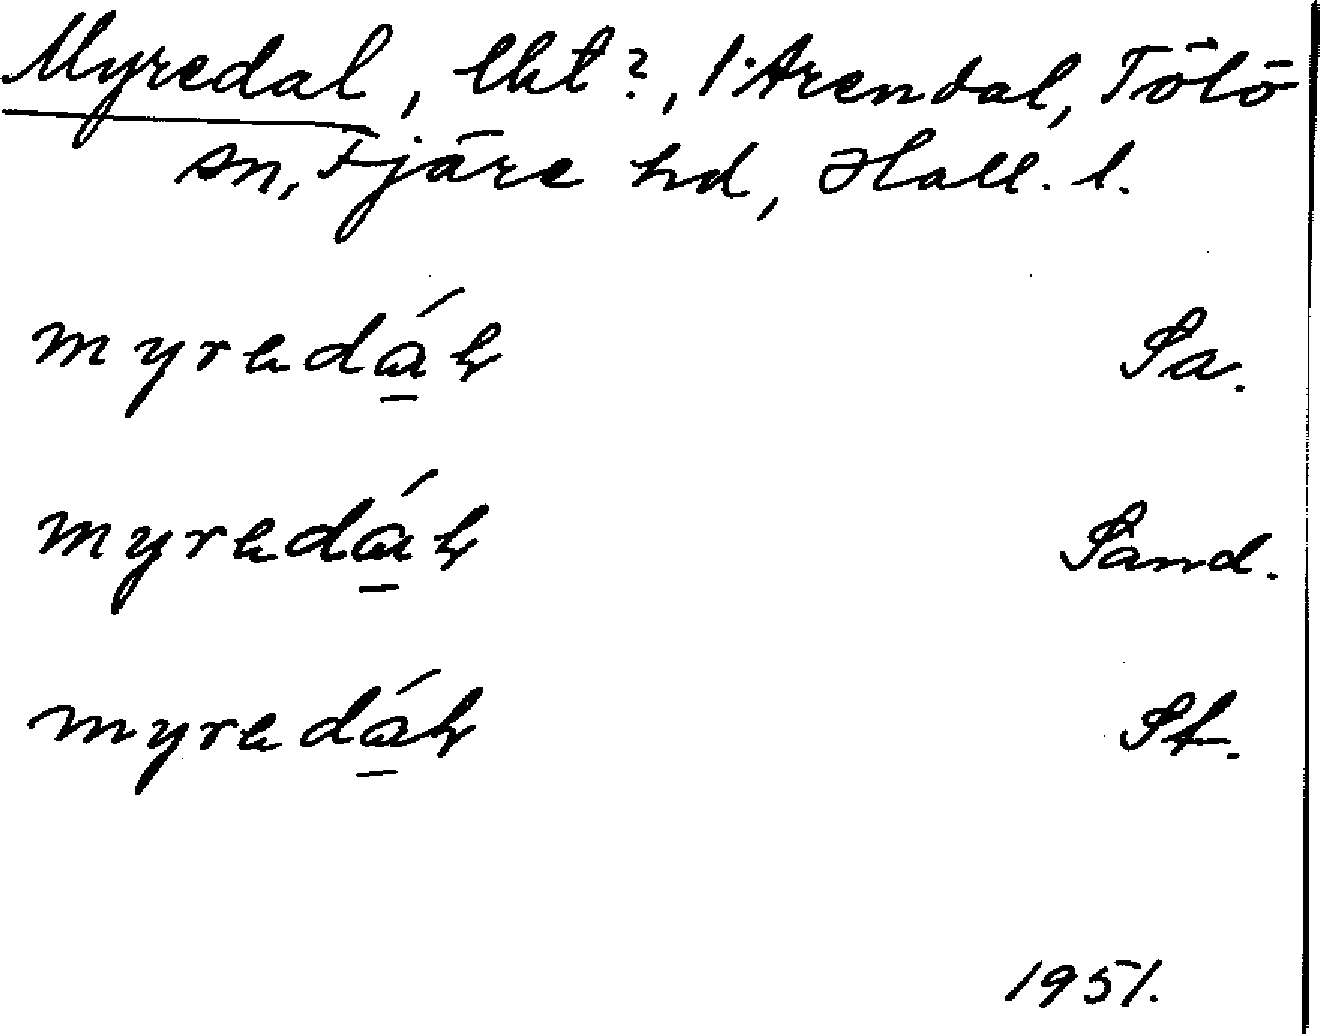 Myredal, lht?, 1 Arendal, Tölö
sn, Fjäre hd, Hall. l.
myredál Sa.
myredál Sand.
myredál St.
1951.